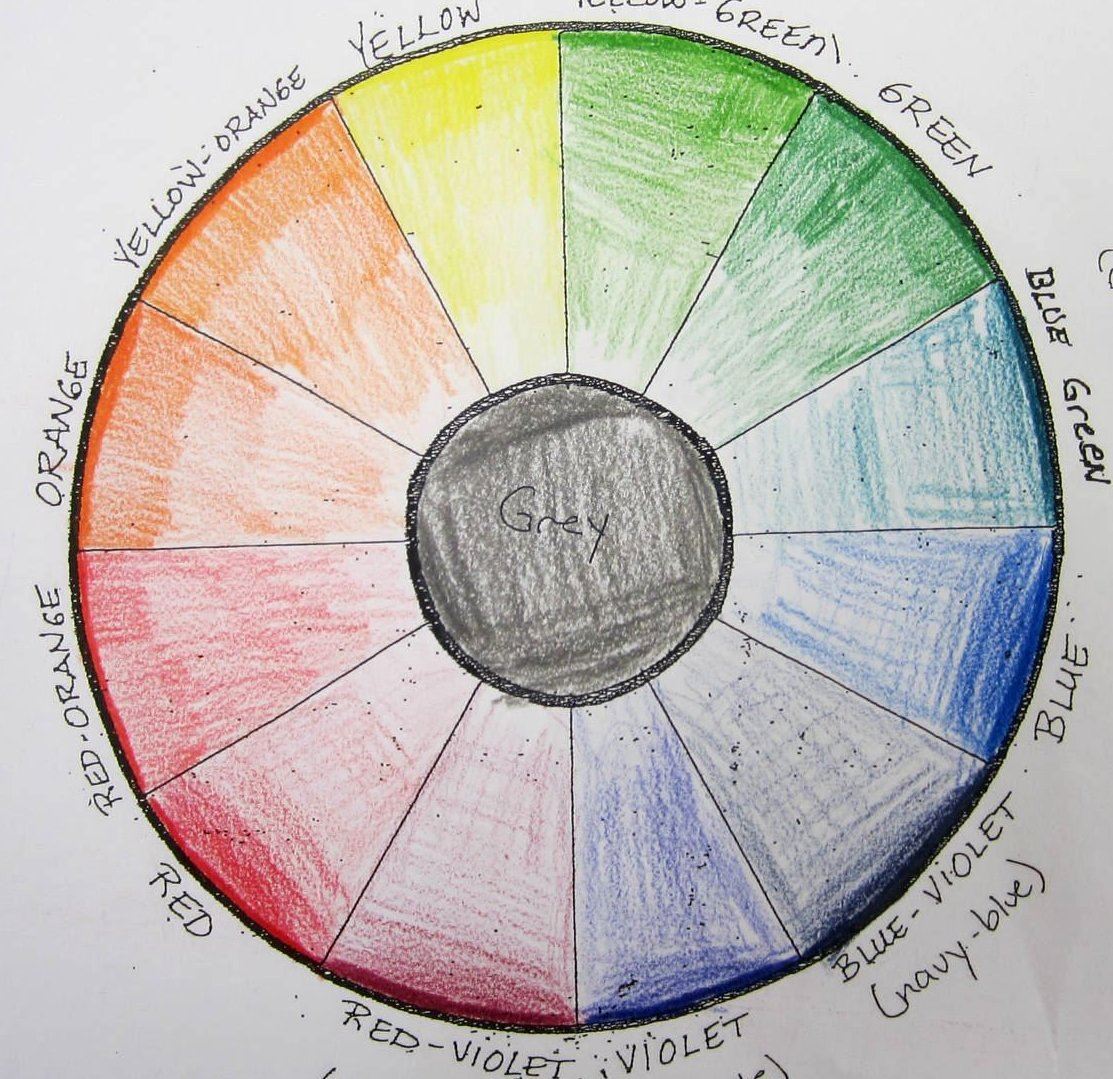 YELLOW
YELLOW-GREEN
GREEN
BLUE GreeN
BLUE
BLUE-VIOLET
(navy-blue)
VIOLET
RED-VIOLET
RED
RED-ORANGE
ORANGE
YELLOW-ORANGE
Grey